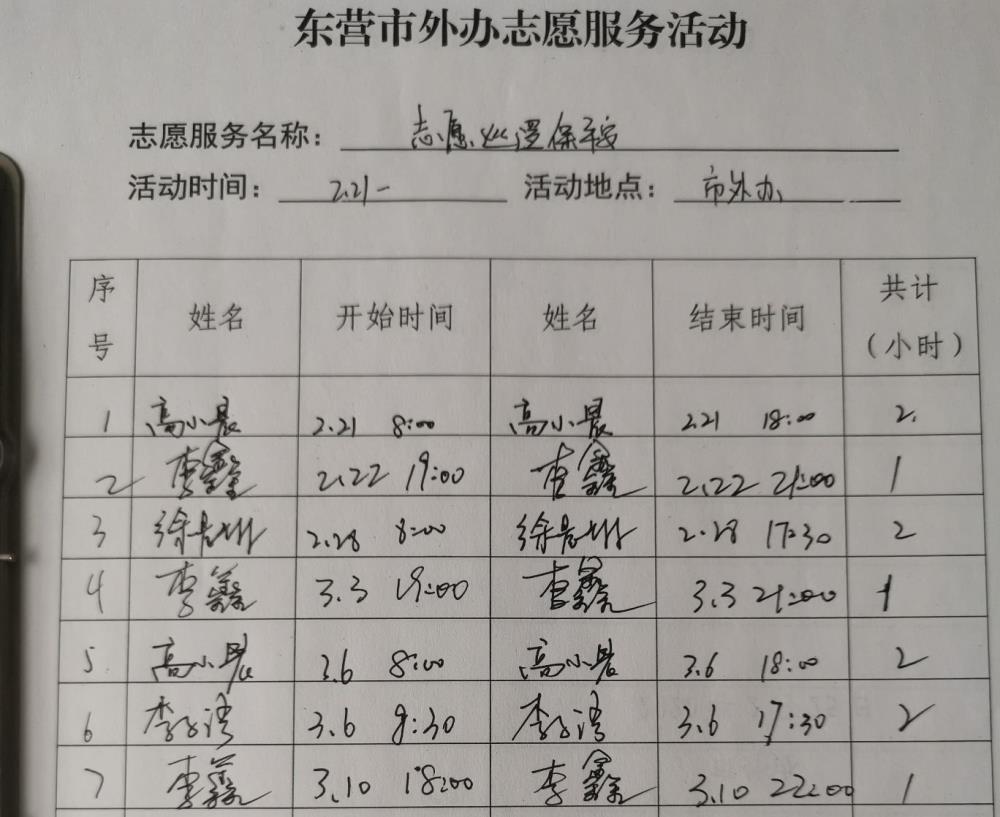 东营市外办志愿服务活动
志愿服务名称： 志愿巡逻保平安
活动时间： 2.21- 活动地点： 市外办
序号 姓名 开始时间 姓名 结束时间 共计（小时）
1 高小晨 2.21 8:00 高小晨 2.21 18:00 2
2 李鑫 2.22 19:00 李鑫 2.22 21:00 1
3 徐 2.28 8:00 徐 2.28 17:30 2
4 李鑫 3.3 19:00 李鑫 3.3 21:00 1
5 高小晨 3.6 8:00 高小晨 3.6 18:00 2
6 李 3.6 9:30 李 3.6 17:30 2
7 李鑫 3.10 18:00 李鑫 3.10 22:00 1